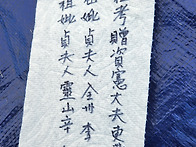 考贈資憲大夫
妣貞夫人全州李
祖妣貞夫人靈山辛